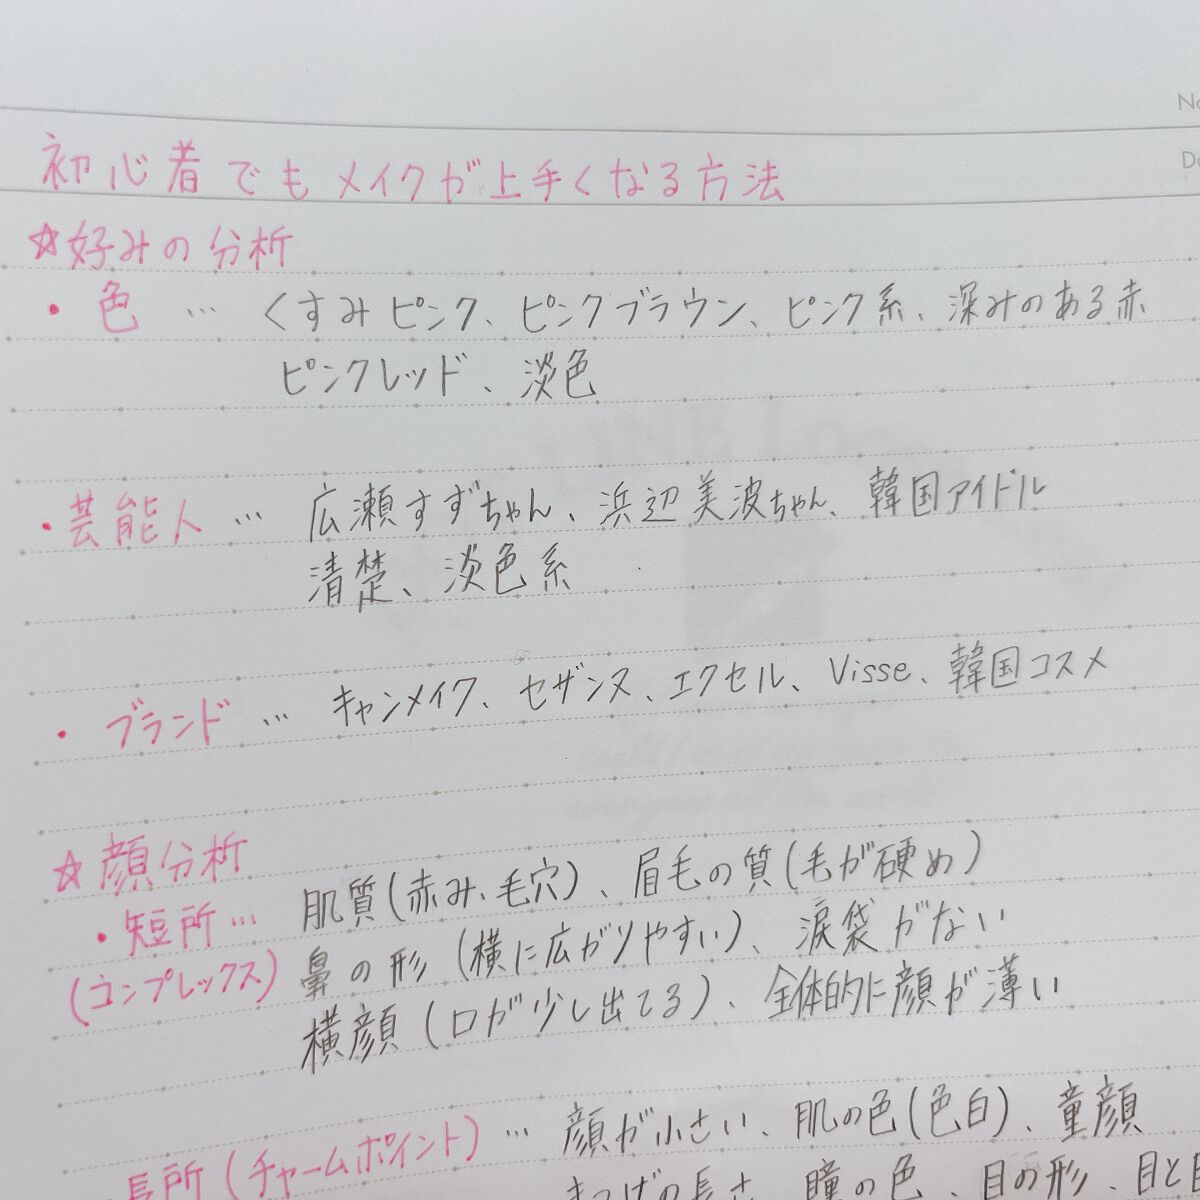 No
Da
初心者でもメイクが上手くなる方法
☆好みの分析
・色 … くすみピンク、ピンクブラウン、ピンク系、深みのある赤
ピンクレッド、淡色
・芸能人 … 広瀬すずちゃん、浜辺美波ちゃん、韓国アイドル
清楚、淡色系
・ブランド … キャンメイク、セザンヌ、エクセル、Visse、韓国コスメ
☆顔分析
・短所 … 肌質(赤み、毛穴)、眉毛の質(毛が硬め)
(コンプレックス) 鼻の形(横に広がりやすい)、涙袋がない
横顔(口が少し出てる)、全体的に顔が薄い
長所(チャームポイント) … 顔が小さい、肌の色(色白)、童顔
まつげの長さ、瞳の色、目の形、目と